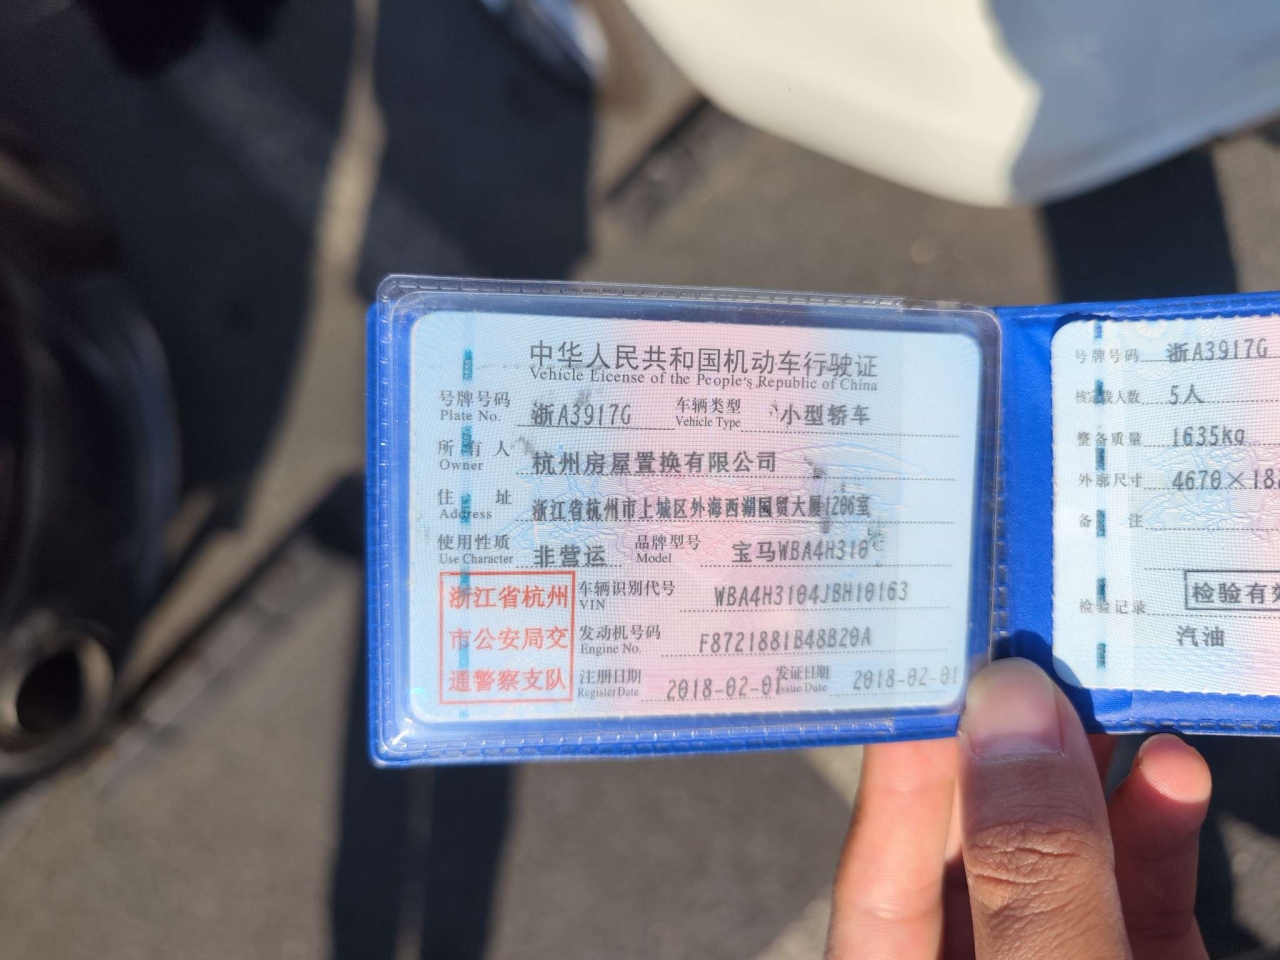 中华人民共和国机动车行驶证
Vehicle License of the People's Republic of China
号牌号码 浙A3917G 车辆类型 小型轿车
Plate No. Vehicle Type
所有人 杭州房屋置换有限公司
Owner
住址 浙江省杭州市上城区外海西湖国贸大厦1206室
Address
使用性质 非营运 品牌型号 宝马WBA4H310
Use Character Model
浙江省杭州
市公安局交
通警察支队
车辆识别代号 WBA4H3104JBH10163
VIN
发动机号码 F8721881B48B20A
Engine No.
注册日期 2018-02-01 发证日期 2018-02-01
Register Date Issue Date
号牌号码 浙A3917G
核定载人数 5人
整备质量 1635kg
外廓尺寸 4670×18
备注
检验记录 检验有效
汽油